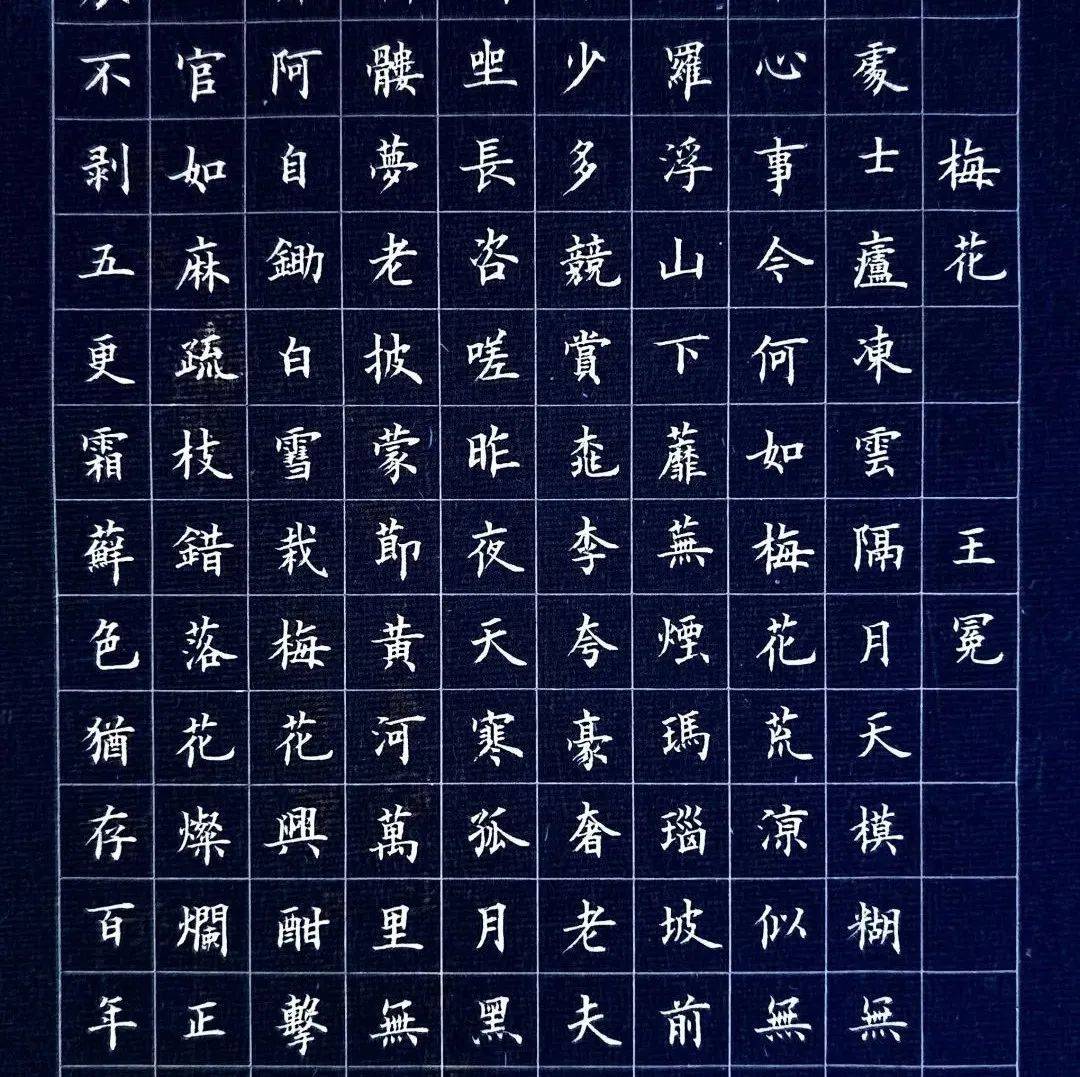 梅花 王冕
處士廬凍雲隔月天模糊無
心事今何如梅花荒涼似無
羅浮山下蘼蕪煙瑪瑙坡前
少多競賞桃李夸豪奢老夫
坐長咨嗟昨夜天寒孤月黑
髏夢老披蒙節黃河萬里無
阿自鋤白雪栽梅花興酣擊
官如麻疏枝錯落花燦爛正
不剥五更霜蘚色猶存百年